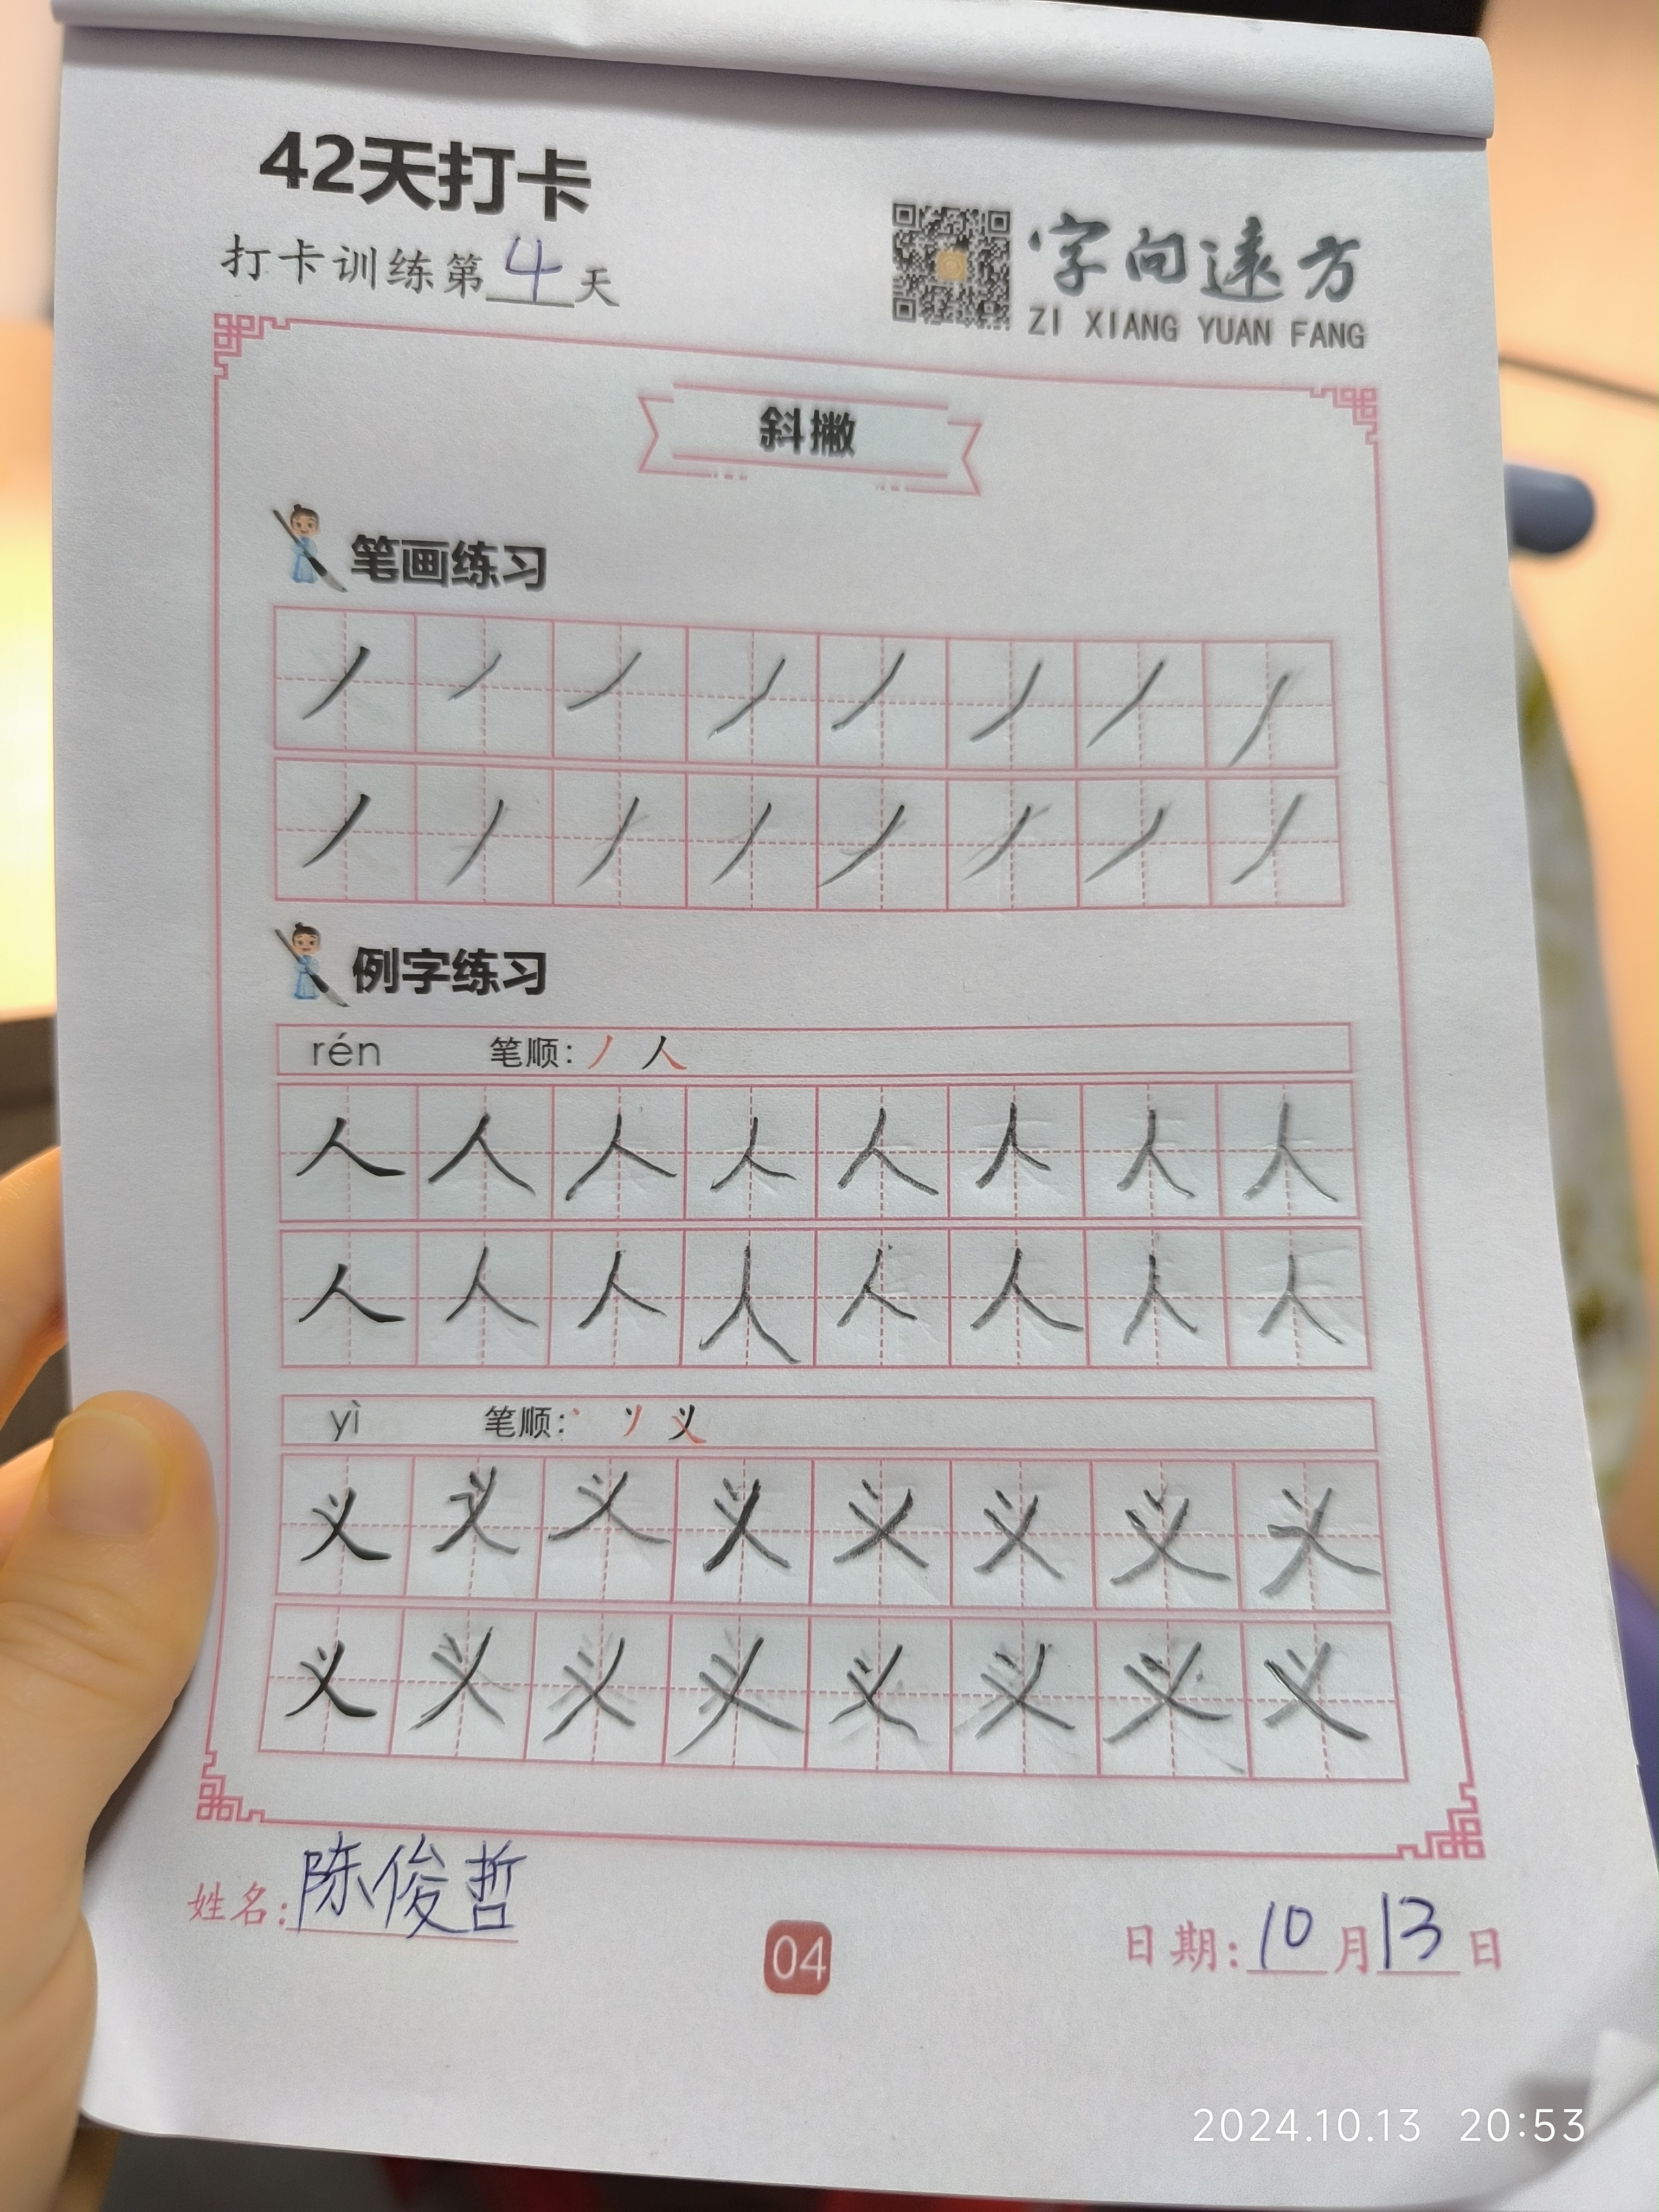 42天打卡
打卡训练第4天
字向遠方
ZI XIANG YUAN FANG
斜撇
笔画练习
丿 丿 丿 丿 丿 丿 丿 丿
丿 丿 丿 丿 丿 丿 丿 丿
例字练习
rén 笔顺: 丿 人
人 人 人 人 人 人 人 人
人 人 人 人 人 人 人 人
yì 笔顺: 丶 丷 义
义 义 义 义 义 义 义 义
义 义 义 义 义 义 义 义
姓名: 陈俊哲
04
日期: 10月13日
2024.10.13 20:53